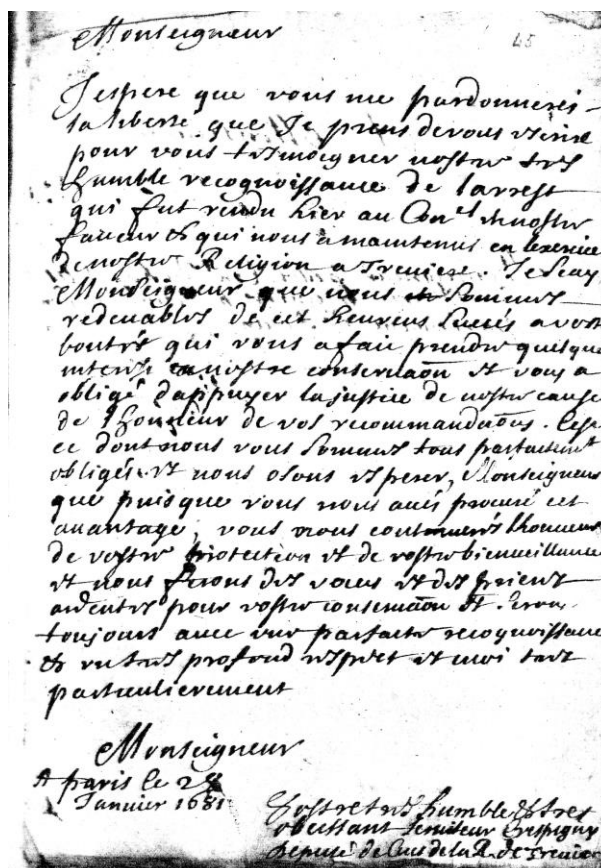 Monseigneur
45
J'espere que vous me pardonnerés
la liberté que Je prens de vous escrire
pour vous tesmoigner nostre tres
humble recognoissance de larrest
qui fut rendu hier au Con.el en nostre
faueur & qui nous a maintenus en lexercice
de nostre Religion a . Je scay
Monseigneur que nous sommes
redeuables de cet heureux succés a vos
bontés qui vous a fait prendre quelque
interest a nostre conseruaon et vous a
obligé d'appuyer la justice de nostre cause
de l'honneur de vos recommandaons. Cest
ce dont nous vous sommes tous parfaitemt
obligés et nous osons esperer, Monseigneur
que puisque vous nous aués procuré cet
auantage, vous nous continuerés lhonneur
de vostre protection et de vostre bienueillance
et nous ferons des voeus et des prieres
ardentes pour vostre conseruaon et serons
toujours auec une parfaite recognoissance
& un tres profond respect et moi tres
particulierement
Monseigneur
A paris le 28
Januier 1681
Vostre tres humble & tres
obeissant seruiteur
Deputé de de la R. de